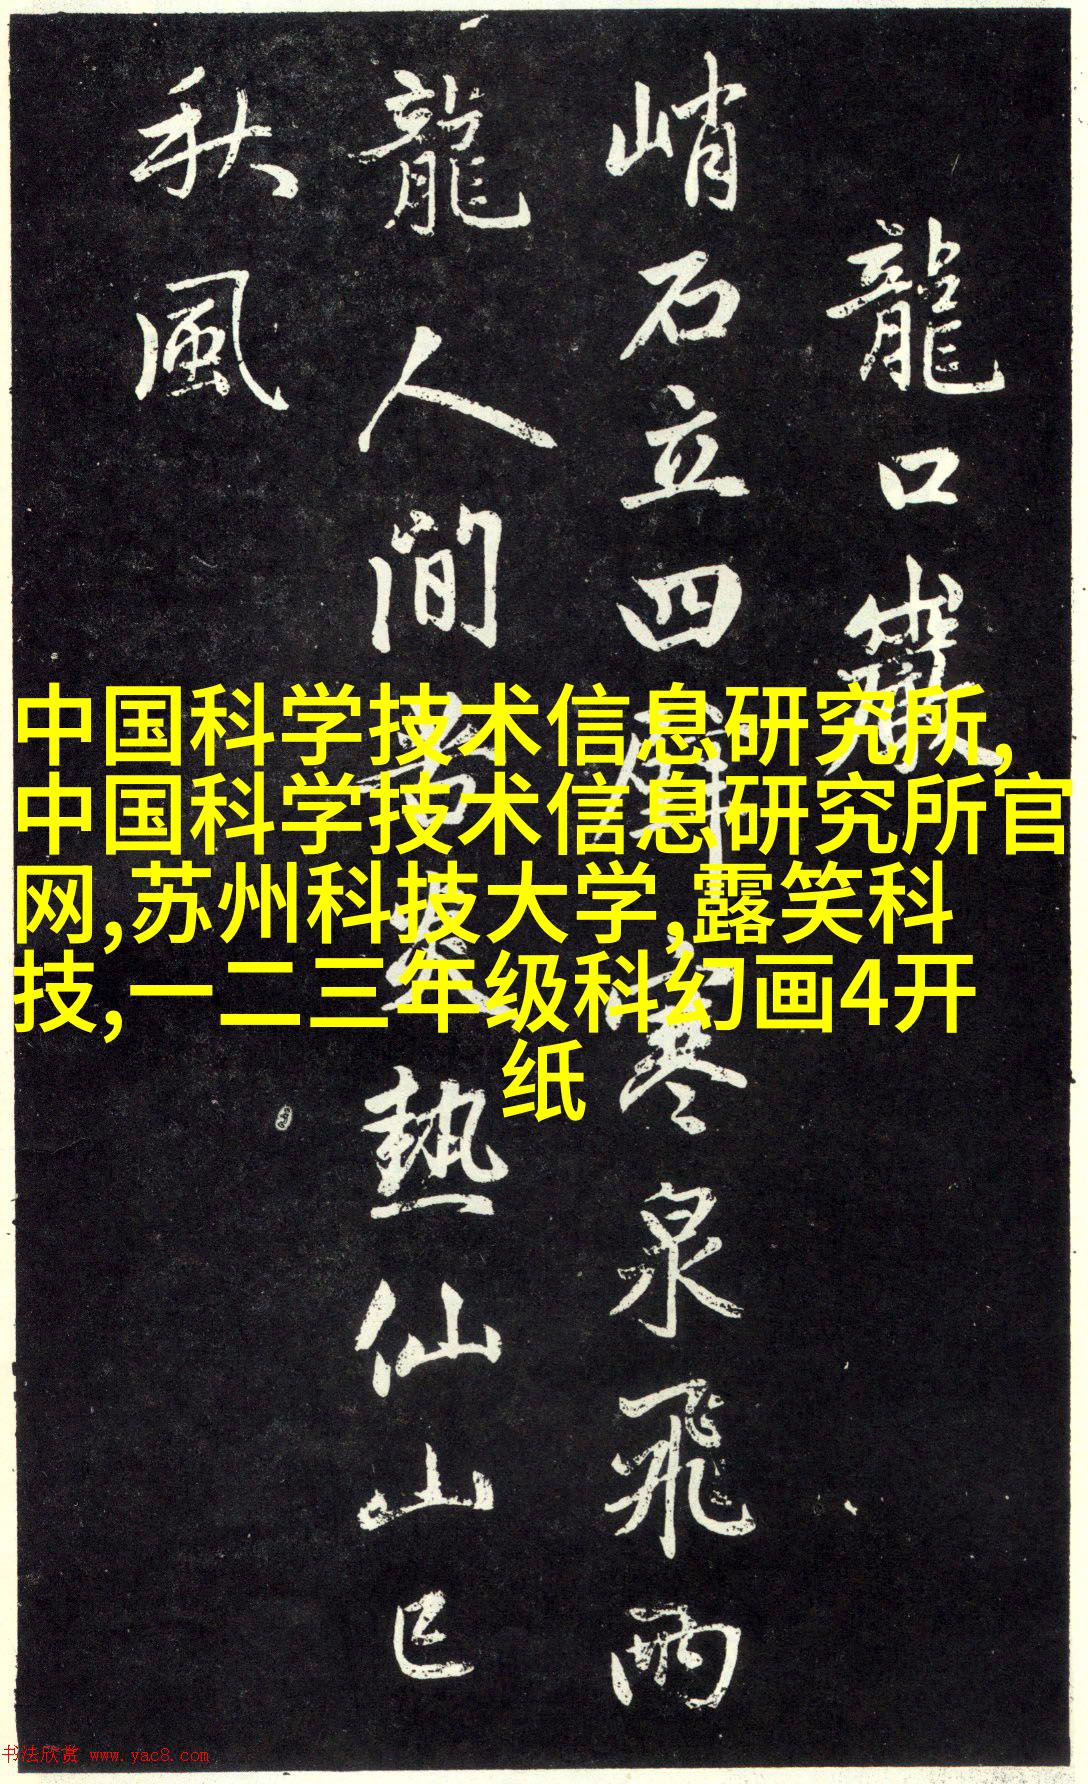 龍口巖
峭石立四壁寒泉飛兩
龍人間苦炎熱仙山已
秋風
中国科学技术信息研究所,
中国科学技术信息研究所官
网,苏州科技大学,露笑科
技,一二三年级科幻画4开
纸
书法欣赏 www.yac8.com